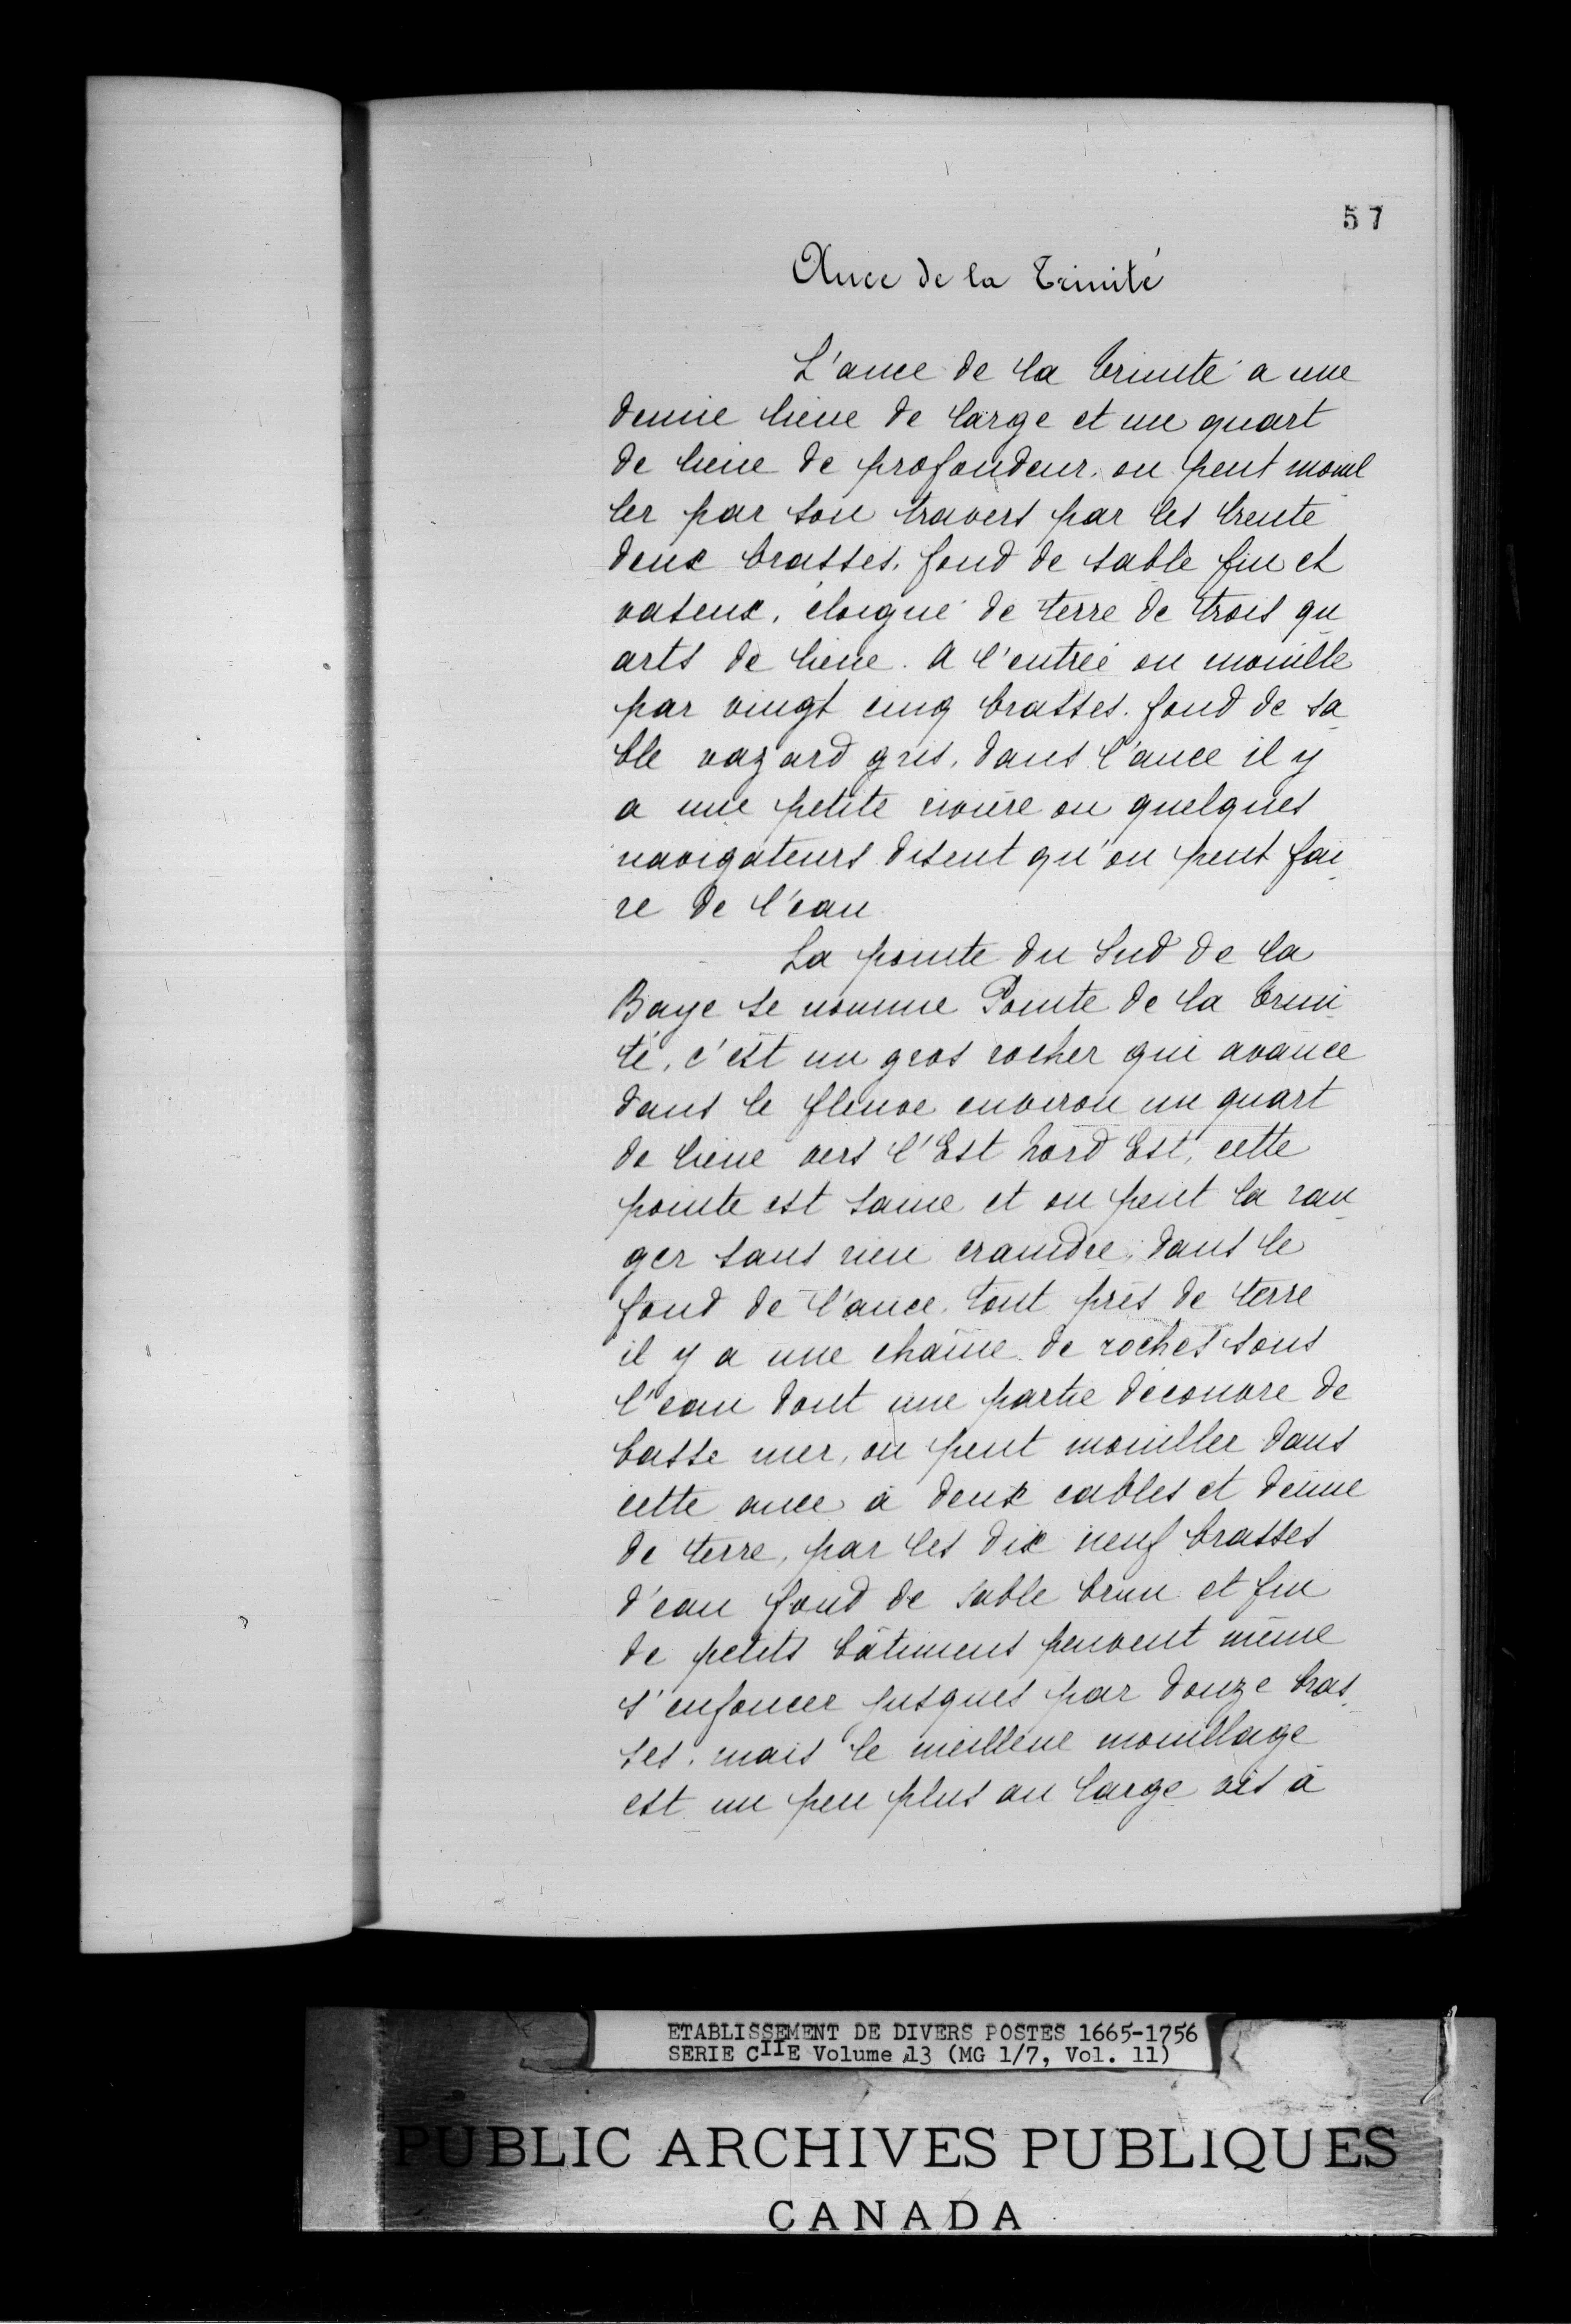 57
Ance de la Trinité
L'ance de la trinité a une
demie lieue de large et un quart
de lieue de profondeur. on peut mouil
ler par son travers par les trente
deux brasses, fond de sable fin et
vaseux, éloigné de terre de trois qu
arts de lieue. A l'entrée on mouille
par vingt cinq brasses. fond de sa
ble vazard gris, dans l'ance il y
a une petite rivière ou quelques
navigateurs disent qu'on peut fai
re de l'eau
La pointe du Sud de la
Baye se nomme Pointe de la trini
té, c'est un gros rocher qui avance
dans le fleuve environ un quart
de lieue vers l'Est Nord Est, cette
pointe est saine et on peut la ran
ger sans rien craindre, dans le
fond de l'ance, tout près de terre
il y a une chaîne de roches sous
l'eau dont une partie découvre de
basse mer, on peut mouiller dans
cette ance à deux cables et demie
de terre, par les dix neuf brasses
d'eau fond de sable brun et fin
de petits bâtimens peuvent même
s'enfoncer jusques par douze bras
ses. mais le meilleur mouillage
est un peu plus au large vis à
ETABLISSEMENT DE DIVERS POSTES 1665-1756
SERIE CIIE Volume 13 (MG 1/7, Vol. 11)
PUBLIC ARCHIVES PUBLIQUES
CANADA